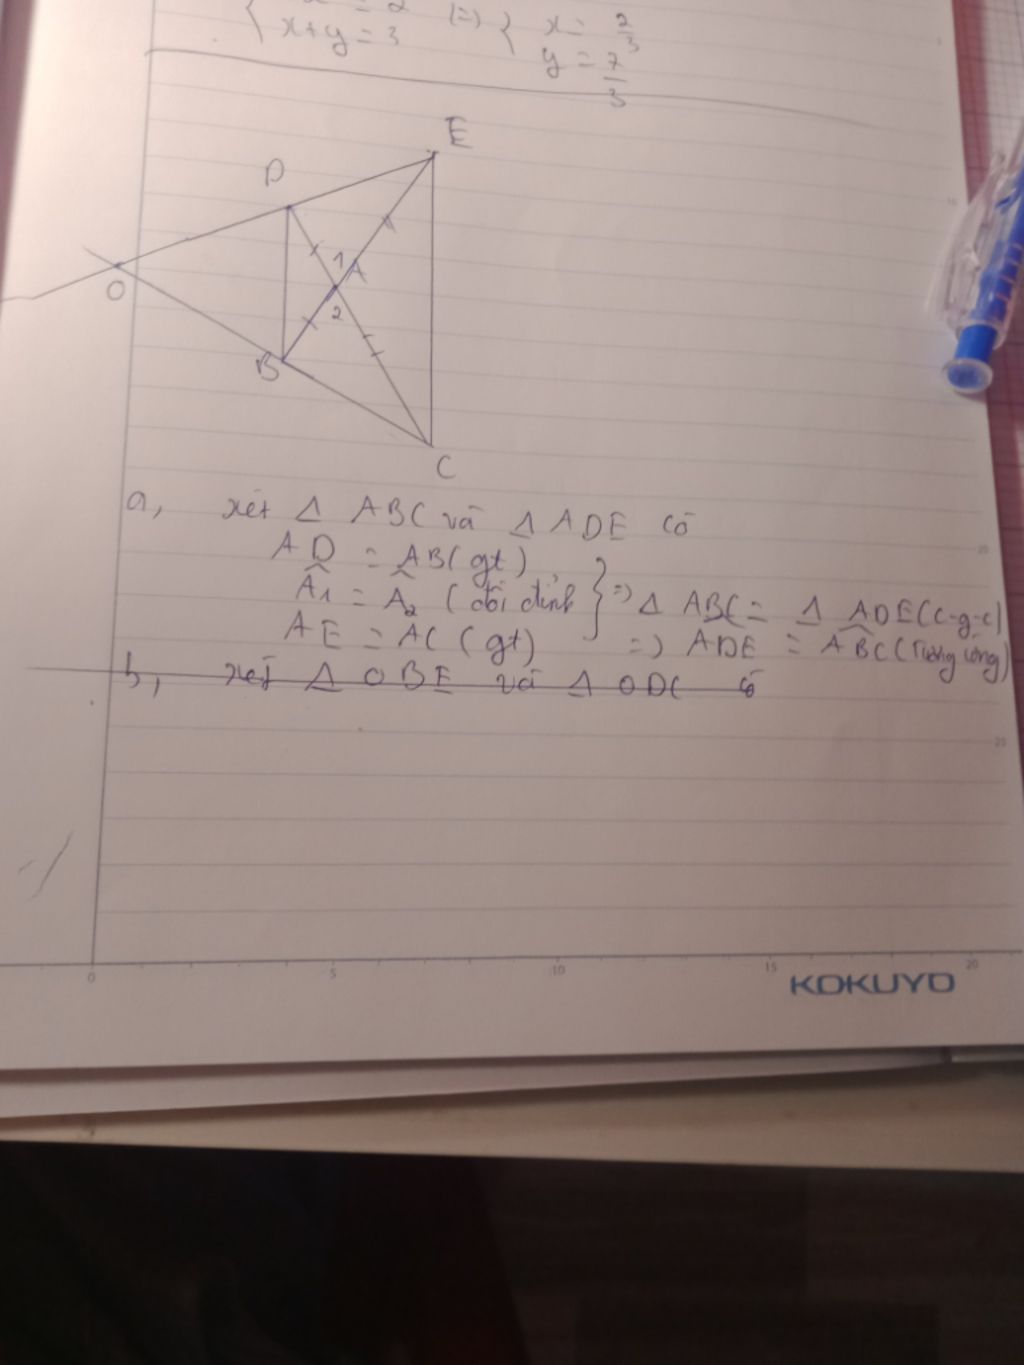 x+y = 3 (=) { x = 2/3
y = 7/3
E
D
1 A
O
2
B
C
a, xét Δ ABC và Δ ADE có
AD = AB (gt)
Â1 = Â2 (đối đỉnh } => Δ ABC = Δ ADE (c-g-c)
AE = AC (gt) => ADE = ABC (tương ứng)
b, xét Δ OBE và Δ ODC có
0 5 10 15 20
KOKUYO